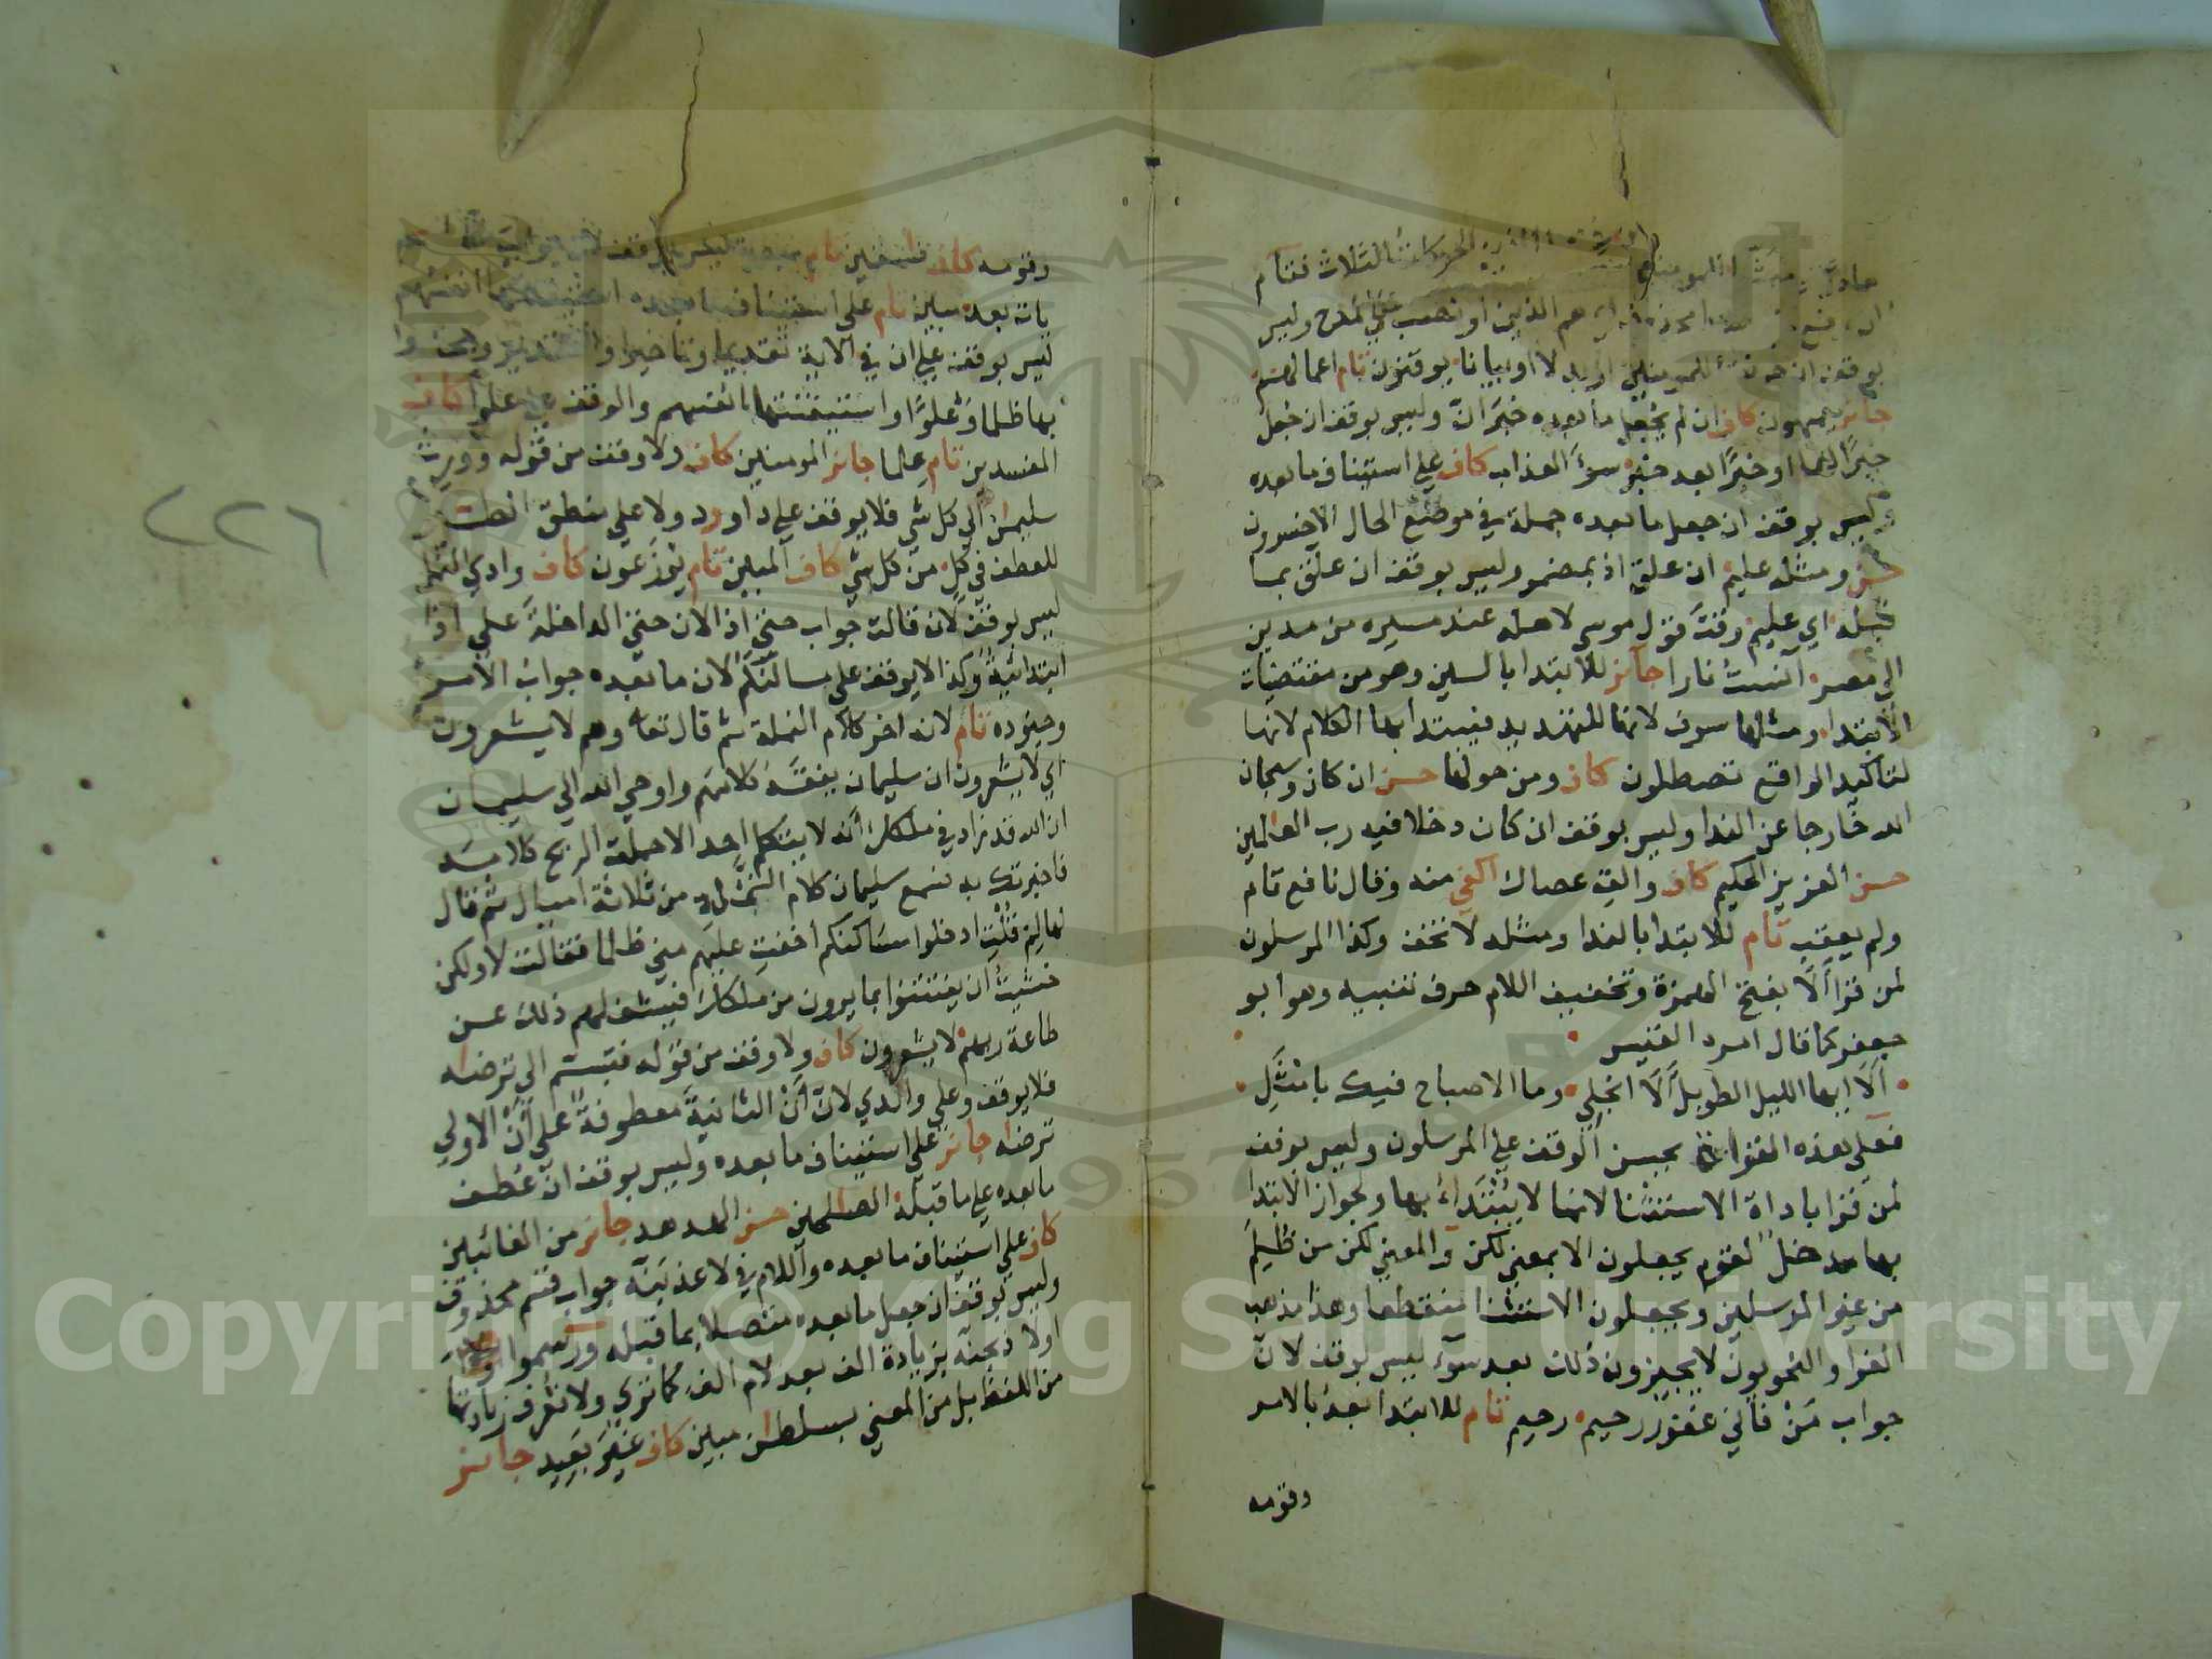 الحركات الثلاث فتام
هم الذين او نصب على المدح وليس
بوقف ان جرت للمومنين او بدلا او بيانا يوقنون تام اعمالهم
جائز يعمهون كاف ان لم يجعل ما بعده خبر ان وليس بوقف ان جعل
خبرًا لهما او خبرًا بعد خبر سوء العذاب كاف على استيناف ما بعده
وليس بوقف ان جعل ما بعده جملة في موضع الحال الاخسرون
حسن ومثله عليم ان علق اذ بمضمر وليس بوقف ان علق بما
قبله اي عليم وقت قول موسى لاهله عند مسيره من مدين
الى مصر آنست نارا جائز للابتدا بالسين وهو من مقتضيات
الابتدا ومثلها سوف لانها للتهديد فيبتدا بها الكلام لانها
لتاكيد الواقع تصطلون كاف ومن حولها حسن ان كان وسبحان
الله خارجا عن الندا وليس بوقف ان كان دخلا فيه رب العالمين
حسن العزيز الحكيم كاف والق عصاك اكفي منه وقال نافع تام
ولم يعقب تام للابتدا بالندا ومثله لا تخف وكذا المرسلون
لمن قرا ألَا بفتح الهمزة وتخفيف اللام حرف تنبيه وهو ابو
جعفر كما قال امرء القيس
ألَا ايها الليل الطويل ألَا انجلي وما الاصباح فيك بامثل
فعلى هذه القراة يحسن الوقف على المرسلون وليس بوقف
لمن قرا باداة الاستثنا لانها لا يبتداء بها ولجواز الابتدا
بها مدخل لقوم يجعلون الا بمعنى لكن والمعنى لكن من ظلم
من غير المرسلين ويجعلون الاستثنا منقطعا وهذا مذهب
الفرا والنحويون لا يجيزون ذلك بعد سوء ليس بوقف لان
جواب مَنْ فاني غفور رحيم رحيم تام للابتدا بعد بالامر
وقومه
وقومه كاف فاسقين تام مبصرة ليس بوقف لان جواب
باته بعد مبين تام على استيناف ما بعده انفسهم
ليس بوقف على ان في الاية تقديما وتاخيرا والتقدير وجحدوا
بها ظلما وعلوًا واستيقنتها انفسهم والوقف على علوا كاف
المفسدين تام علما جائز المومنين كاف ولا وقف من قوله وورث
سليمن الى كل شي فلا يوقف على داورد ولا على منطق الطير
للعطف في كل من كل شي كاف المبين تام يوزعون كاف وادي النمل
ليس بوقف لان قالت جواب حتى اذ الان حتى الداخلة على اذ
ابتدائية وكذا لا يوقف على مساكنكم لان ما بعده جواب الامر
وجنوده تام لانه اخر كلام النملة ثم قال تعا وهم لا يشعرون
اي لا يشعرون ان سليمان يفقه كلامهم واوحي الله الى سليمان
ان الله قد زاد في ملكك انه لا يتكلم احد الا حملت الريح كلامه
فاخبرتك به فسمع سليمان كلام النملة من ثلاثة اميال ثم قال
لها لِمَ قلتِ ادخلوا مساكنكم اخفتِ عليهم مني ظلما فقالت لا ولكن
خشيتُ ان يفتتنوا بما يرون من ملكك فيشغلهم ذلك عن
طاعة ربهم لا يشعرون كاف ولا وقف من قوله فتبسم الى ترضاه
فلا يوقف وعلى والدي لان ان الثانية معطوفة على ان الاولى
ترضاه جائز على استيناف ما بعده وليس بوقف ان عطف
ما بعده على ما قبله الصلحين حسن الهدهد جائز من الغائبين
كاف على استيناف ما بعده واللام في لاعذبنه جواب قسم محذوف
وليس بوقف ان جعل ما بعده متصلا بما قبله ورسموا
اولا ذبحنه بزيادة الف بعد لام الف كما ترى ولا تعرف زيادتها
من اللفظ بل من المعنى بسلطن مبين كاف غير بعيد جائز
٢٢٦
Copyright © King Saud University
1957